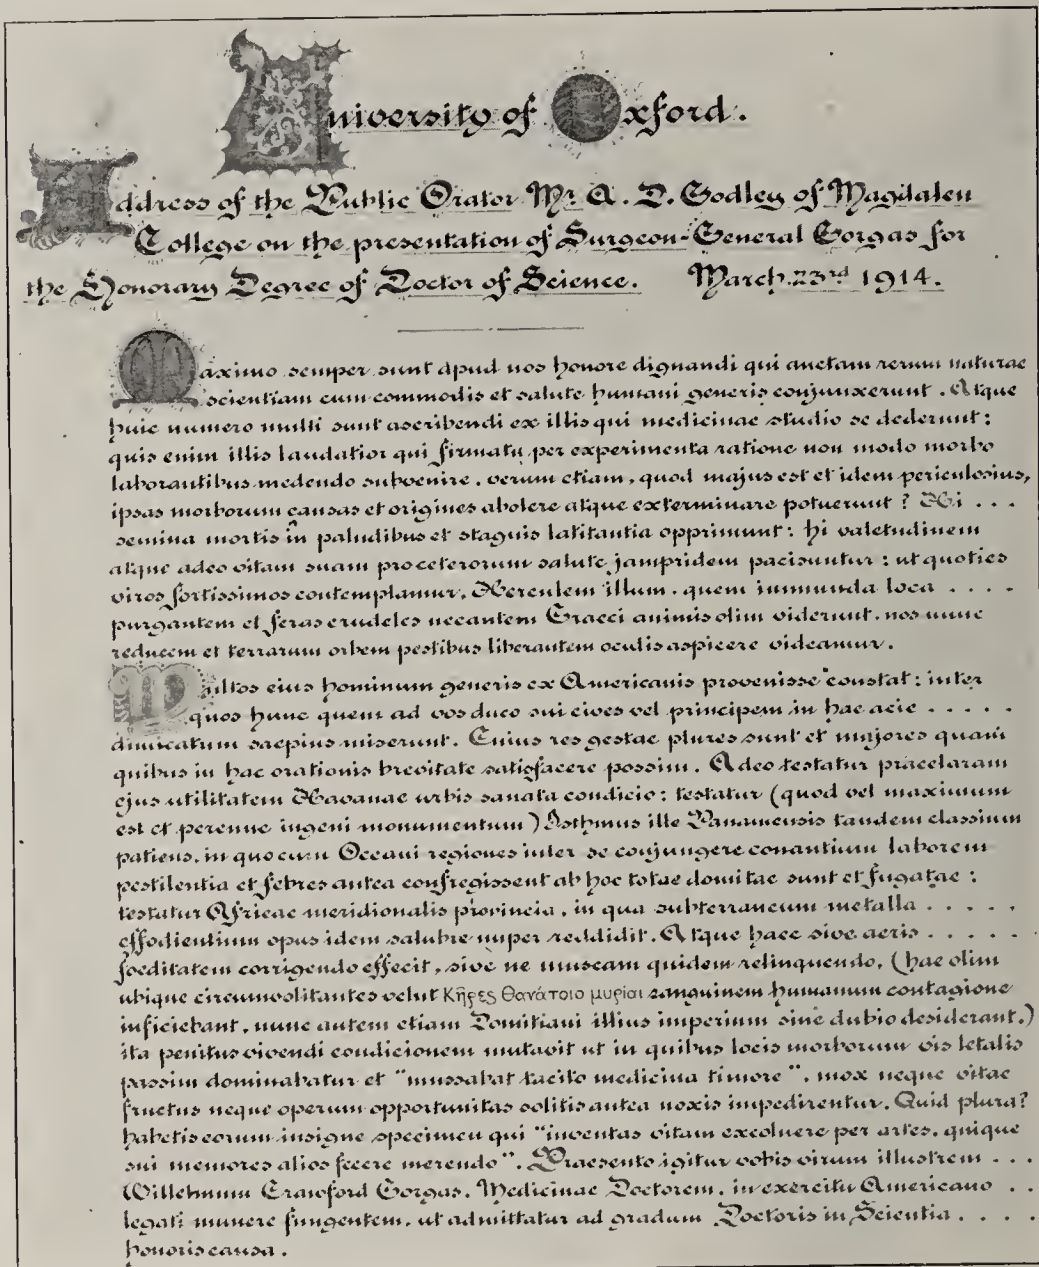 University of Oxford.
Address of the Public Orator Mr. A. D. Godley of Magdalen
College on the presentation of Surgeon-General Gorgas for
the Honorary Degree of Doctor of Science. March 23rd 1914.
Maximo semper sunt apud nos honore dignandi qui auctam rerum naturae
scientiam cum commodis et salute humani generis conjunxerunt. Atque
huic numero multi sunt ascribendi ex illis qui medicinae studio se dederunt:
quis enim illis laudatior qui firmata per experimenta ratione non modo morbo
laborantibus medendo subvenire, verum etiam, quod majus est et idem periculosius,
ipsas morborum causas et origines abolere atque exterminare potuerunt? Hi ...
semina mortis in paludibus et stagnis latitantia opprimunt: hi valetudinem
atque adeo vitam suam pro ceterorum salute jampridem paciscuntur: ut quoties
viros fortissimos contemplamur, Herculem illum, quem immunda loca ....
purgantem et feras crudeles necantem Graeci animis olim viderunt, nos nunc
reducem et terrarum orbem pestibus liberantem oculis aspicere videamur.
Multos eius hominum generis ex Americanis provenisse constat: inter
quos hunc quem ad vos duco sui cives vel principem in hac acie .....
dimicatum saepius miserunt. Cuius res gestae plures sunt et majores quam
quibus in hac orationis brevitate satisfacere possim. Adeo testatur praeclaram
ejus utilitatem Havanae urbis sanata condicio: testatur (quod vel maximum
est et perenne ingeni monumentum) Isthmus ille Panamensis tandem classium
patiens, in quo cum Oceani regiones inter se conjungere conantium laborem
pestilentia et febres antea confregissent ab hoc totae domitae sunt et fugatae:
testatur Africae meridionalis provincia, in qua subterraneum metalla .....
effodientium opus idem salubre nuper reddidit. Atque haec sive aeris .....
foeditatem corrigendo effecit, sive ne muscam quidem relinquendo, (hae olim
ubique circumvolitantes velut Κῆρες θανάτοιο μυρίαι sanguinem humanum contagione
inficiebant, nunc autem etiam Domitiani illius imperium sine dubio desiderant,)
ita penitus vivendi condicionem mutavit ut in quibus locis morborum vis letalis
passim dominabatur et "mussabat tacito medicina timore", mox neque vitae
fructus neque operum opportunitas solitis antea noxis impedirentur. Quid plura?
habetis eorum insigne specimen qui "inventas vitam excoluere per artes, quique
sui memores alios fecere merendo". Praesento igitur vobis virum illustrem ...
Willelmum Crawford Gorgas, Medicinae Doctorem, in exercitu Americano ..
legati munere fungentem, ut admittatur ad gradum Doctoris in Scientia ....
honoris causa.